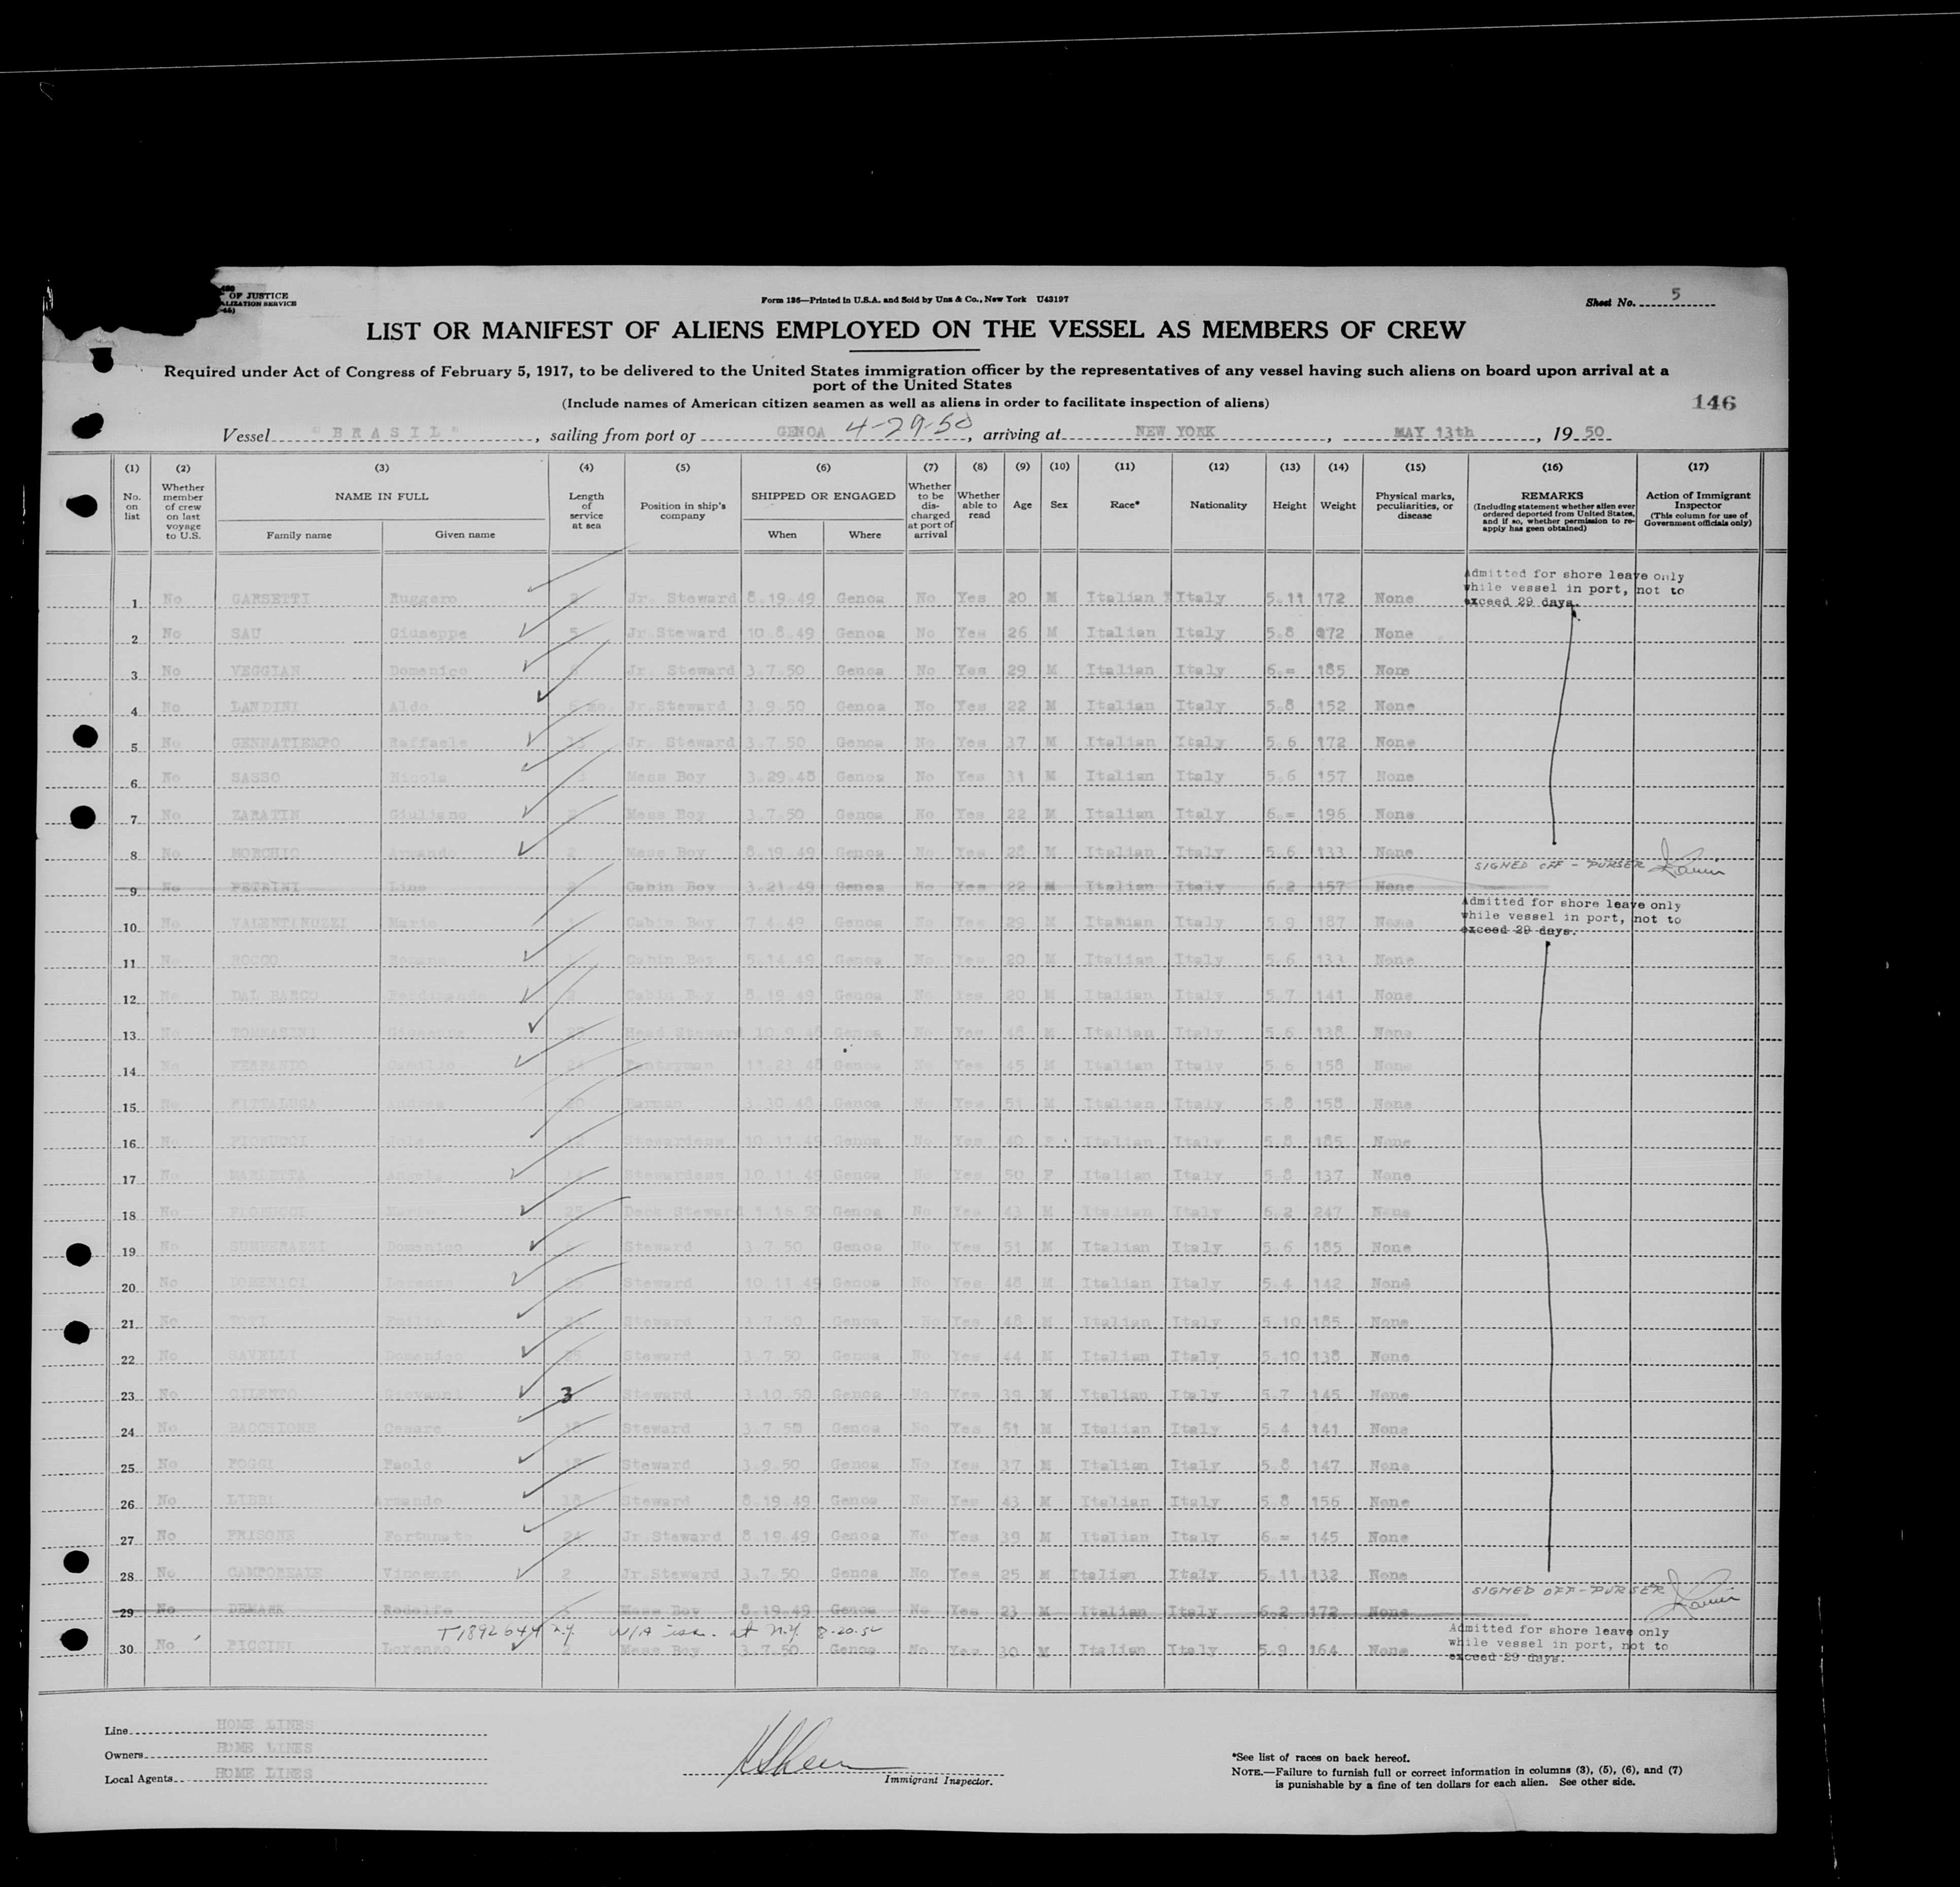 OF JUSTICE
Form 136—Printed in U.S.A. and Sold by Unz & Co., New York U43197
Sheet No. 5
LIST OR MANIFEST OF ALIENS EMPLOYED ON THE VESSEL AS MEMBERS OF CREW
Required under Act of Congress of February 5, 1917, to be delivered to the United States immigration officer by the representatives of any vessel having such aliens on board upon arrival at a
port of the United States
(Include names of American citizen seamen as well as aliens in order to facilitate inspection of aliens)
146
Vessel "BRASIL", sailing from port of GENOA 4-29-50, arriving at NEW YORK, MAY 13th, 19 50
(1) (2) (3) (4) (5) (6) (7) (8) (9) (10) (11) (12) (13) (14) (15) (16) (17)
No. on list
Whether member of crew on last voyage to U.S.
NAME IN FULL
Family name Given name
Length of service at sea
Position in ship's company
SHIPPED OR ENGAGED
When Where
Whether to be discharged at port of arrival
Whether able to read
Age
Sex
Race*
Nationality
Height
Weight
Physical marks, peculiarities, or disease
REMARKS
(Including statement whether alien ever ordered deported from United States, and if so, whether permission to re-apply has geen obtained)
Action of Immigrant Inspector
(This column for use of Government officials only)
Admitted for shore leave only
while vessel in port, not to
exceed 29 days.
1 No GARSETTI Ruggero Jr. Steward 8.19.49 Genoa No Yes 20 M Italian Italy 5.11 172 None
2 No SAU Giuseppe 5 Jr.Steward 10.8.49 Genoa No Yes 26 M Italian Italy 5.8 172 None
3 No VEGGIAN Domenico Jr. Steward 3.7.50 Genoa No Yes 29 M Italian Italy 6.= 185 None
4 No LANDINI Aldo 6 mo. Jr.Steward 3.9.50 Genoa No Yes 22 M Italian Italy 5.8 152 None
5 No GENNATIEMPO Raffaele Jr. Steward 3.7.50 Genoa No Yes 37 M Italian Italy 5.6 172 None
6 No SASSO Nicola 3 Mess Boy 3.29.48 Genoa No Yes 31 M Italian Italy 5.6 157 None
7 No ZARATIN Giuliano 2 Mess Boy 3.7.50 Genoa No Yes 22 M Italian Italy 6.= 196 None
8 No MORCHIO Armando 2 Mess Boy 8.19.49 Genoa No Yes 28 M Italian Italy 5.6 133 None
SIGNED OFF - PURSER
9 No PETRINI Lino 2 Cabin Boy 3.21.49 Genoa No Yes 22 M Italian Italy 6.2 157 None
Admitted for shore leave only
while vessel in port, not to
exceed 29 days.
10 No VALENTINUZZI Mario Cabin Boy 7.4.49 Genoa No Yes 29 M Italian Italy 5.9 187 None
11 No ROCCO Romano Cabin Boy 5.14.49 Genoa No Yes 20 M Italian Italy 5.6 133 None
12 No DAL BASCO Ferdinando Cabin Boy 8.19.49 Genoa No Yes 20 M Italian Italy 5.7 141 None
13 No TOMMASINI Giuseppe Head Steward 10.9.48 Genoa No Yes 48 M Italian Italy 5.6 138 None
14 No Camillo Pantryman 11.23.48 Genoa No Yes 45 M Italian Italy 5.6 158 None
15 No PITTALUGA Andrea Barman 3.30.48 Genoa No Yes 51 M Italian Italy 5.8 158 None
16 No FIORUCCI Stewardess 10.11.49 Genoa No Yes 40 F Italian Italy 5.8 185 None
17 No MARDETTA Angela Stewardess 10.11.49 Genoa No Yes 50 F Italian Italy 5.8 137 None
18 No FIORUCCI 25 Deck Steward 1.18.50 Genoa No Yes 43 M Italian Italy 6.2 247 None
19 No Domenico Steward 3.7.50 Genoa No Yes 51 M Italian Italy 5.6 185 None
20 No DOMENICI Lorenzo Steward 10.11.49 Genoa No Yes 48 M Italian Italy 5.4 142 None
21 No Emilio Steward Genoa No Yes 48 M Italian Italy 5.10 185 None
22 No SAVELLI Domenico 25 Steward 3.7.50 Genoa No Yes 44 M Italian Italy 5.10 138 None
23 No CILENTO Giovanni 3 Steward 3.10.50 Genoa No Yes 39 M Italian Italy 5.7 145 None
24 No BACCHIONE Cesare 18 Steward 3.7.50 Genoa No Yes 51 M Italian Italy 5.4 141 None
25 No POGGI Paolo Steward 3.9.50 Genoa No Yes 37 M Italian Italy 5.8 147 None
26 No LIBRI Armando 18 Steward 8.19.49 Genoa No Yes 43 M Italian Italy 5.8 156 None
27 No FRISONE Fortunato 24 Jr.Steward 8.19.49 Genoa No Yes 39 M Italian Italy 6.= 145 None
28 No CAMPOREALE Vincenzo 2 Jr.Steward 3.7.50 Genoa No Yes 25 M Italian Italy 5.11 132 None
SIGNED OFF - PURSER
29 No DEMARK Rodolfo Mess Boy 8.19.49 Genoa No Yes 23 M Italian Italy 6.2 172 None
T1892644 N.Y. W/A iss. at N.Y. 8-20-52
Admitted for shore leave only
while vessel in port, not to
exceed 29 days.
30 No PICCINI Lorenzo 2 Mess Boy 3.7.50 Genoa No Yes 30 M Italian Italy 5.9 164 None
Line HOME LINES
Owners HOME LINES
Local Agents HOME LINES
Immigrant Inspector.
*See list of races on back hereof.
NOTE.—Failure to furnish full or correct information in columns (3), (5), (6), and (7)
is punishable by a fine of ten dollars for each alien. See other side.